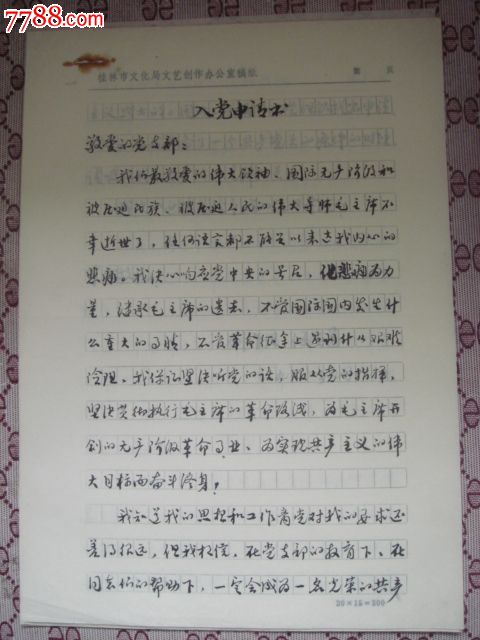 7788.com
桂林市文化局文艺创作办公室稿纸 第 页
入党申请书
敬爱的党支部：
我们最敬爱的伟大领袖、国际无产阶级和
被压迫民族、被压迫人民的伟大导师毛主席不
幸逝世了，任何语言都不能足以表达我内心的
悲痛。我决心响应党中央的号召，化悲痛为力
量，继承毛主席的遗志，不管国际国内发生什
么重大的事情，不管革命征途上遇到什么艰难
险阻，我保证坚决听党的话，服从党的指挥，
坚决贯彻执行毛主席的革命路线，为毛主席开
创的无产阶级革命事业、为实现共产主义的伟
大目标而奋斗终身！
我知道我的思想和工作离党对我的要求还
差得很远，但我相信，在党支部的教育下、在
同志们的帮助下，一定会成为一名光荣的共产
20×15=300